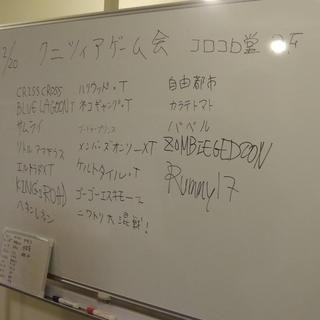 2/20 クニツィアゲーム会 コロコロ堂 2F
CRISS CROSS
BLUE LAGOON T
サムライ
リトルアマデウス
エルドラドXT
KING'S ROAD
ペンギン
ハリウッド・T
ネコギャング・T
メンバーズオンリーXT
ケルトタイル・T
ゴーゴーエスキモー
ニワトリ大混戦!
自由都市
カラテトマト
バベル
ZOMBIEGEDDON
Rummy17